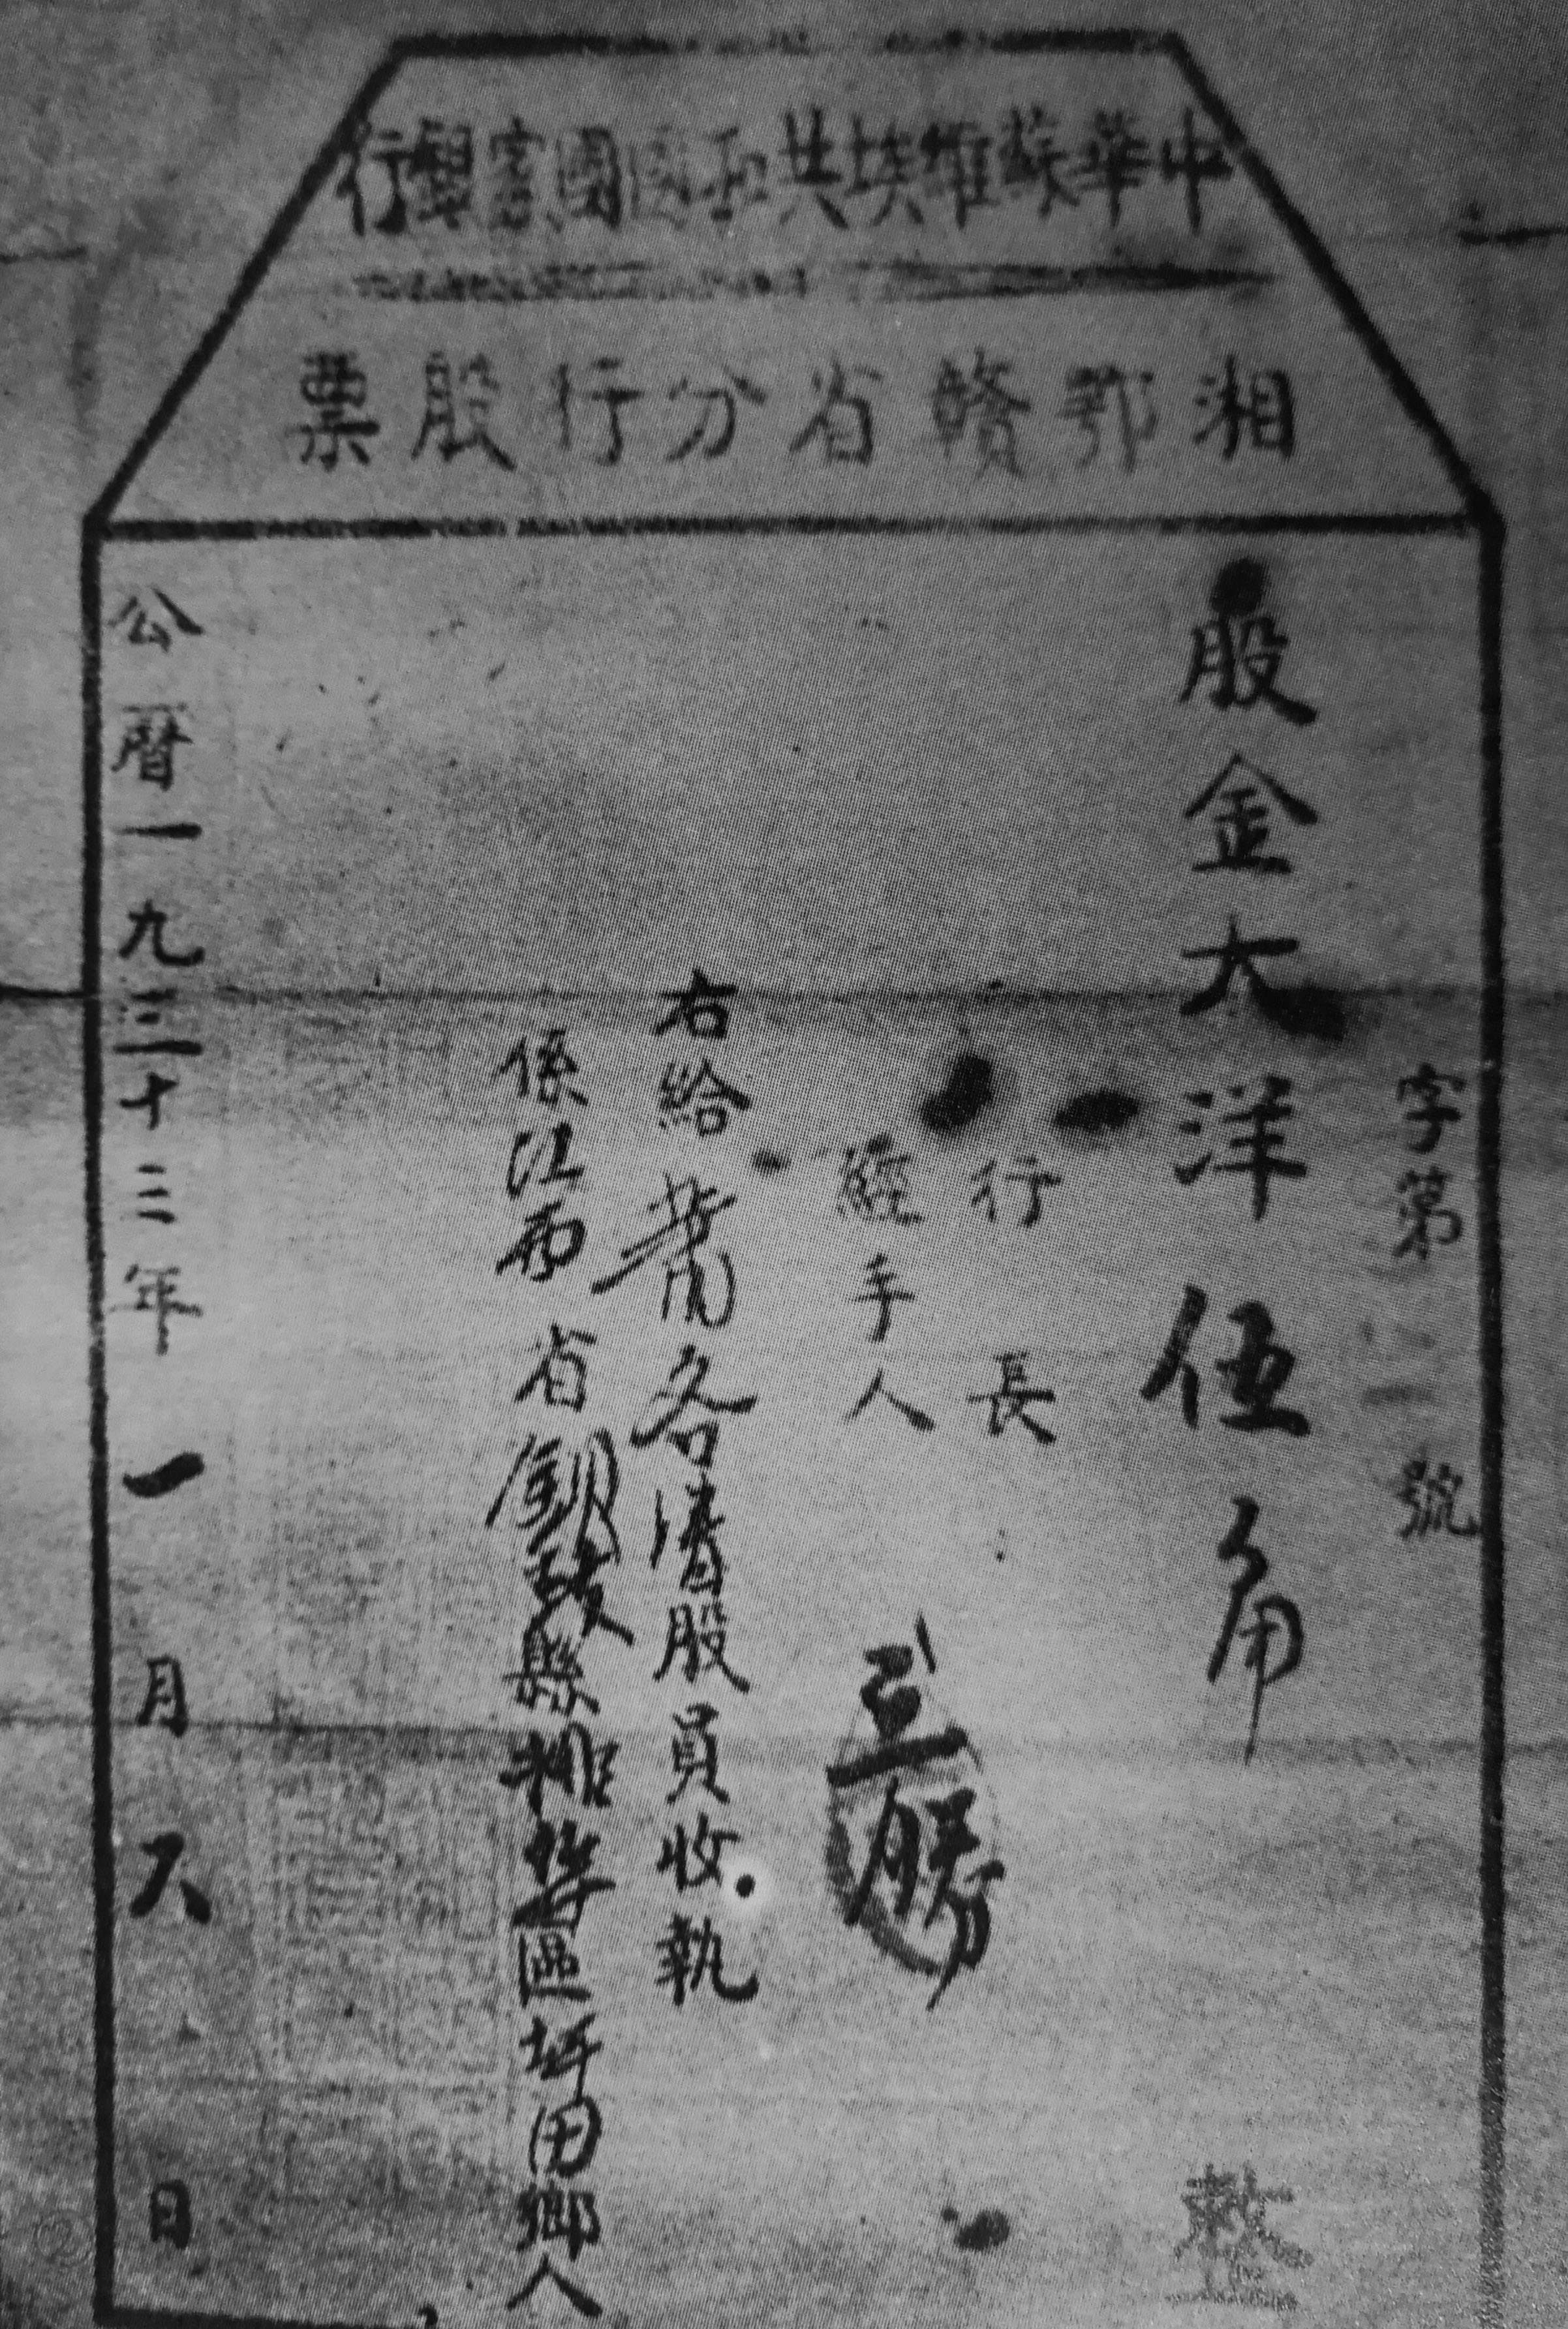 中華蘇維埃共和國國家銀行
湘鄂贛省分行股票
字第 號
股金大洋伍角 整
行長
經手人
右給 各清股員收執
係江西省銅鼓縣排埠區坪田鄉人
公曆一九三十三年一月 日